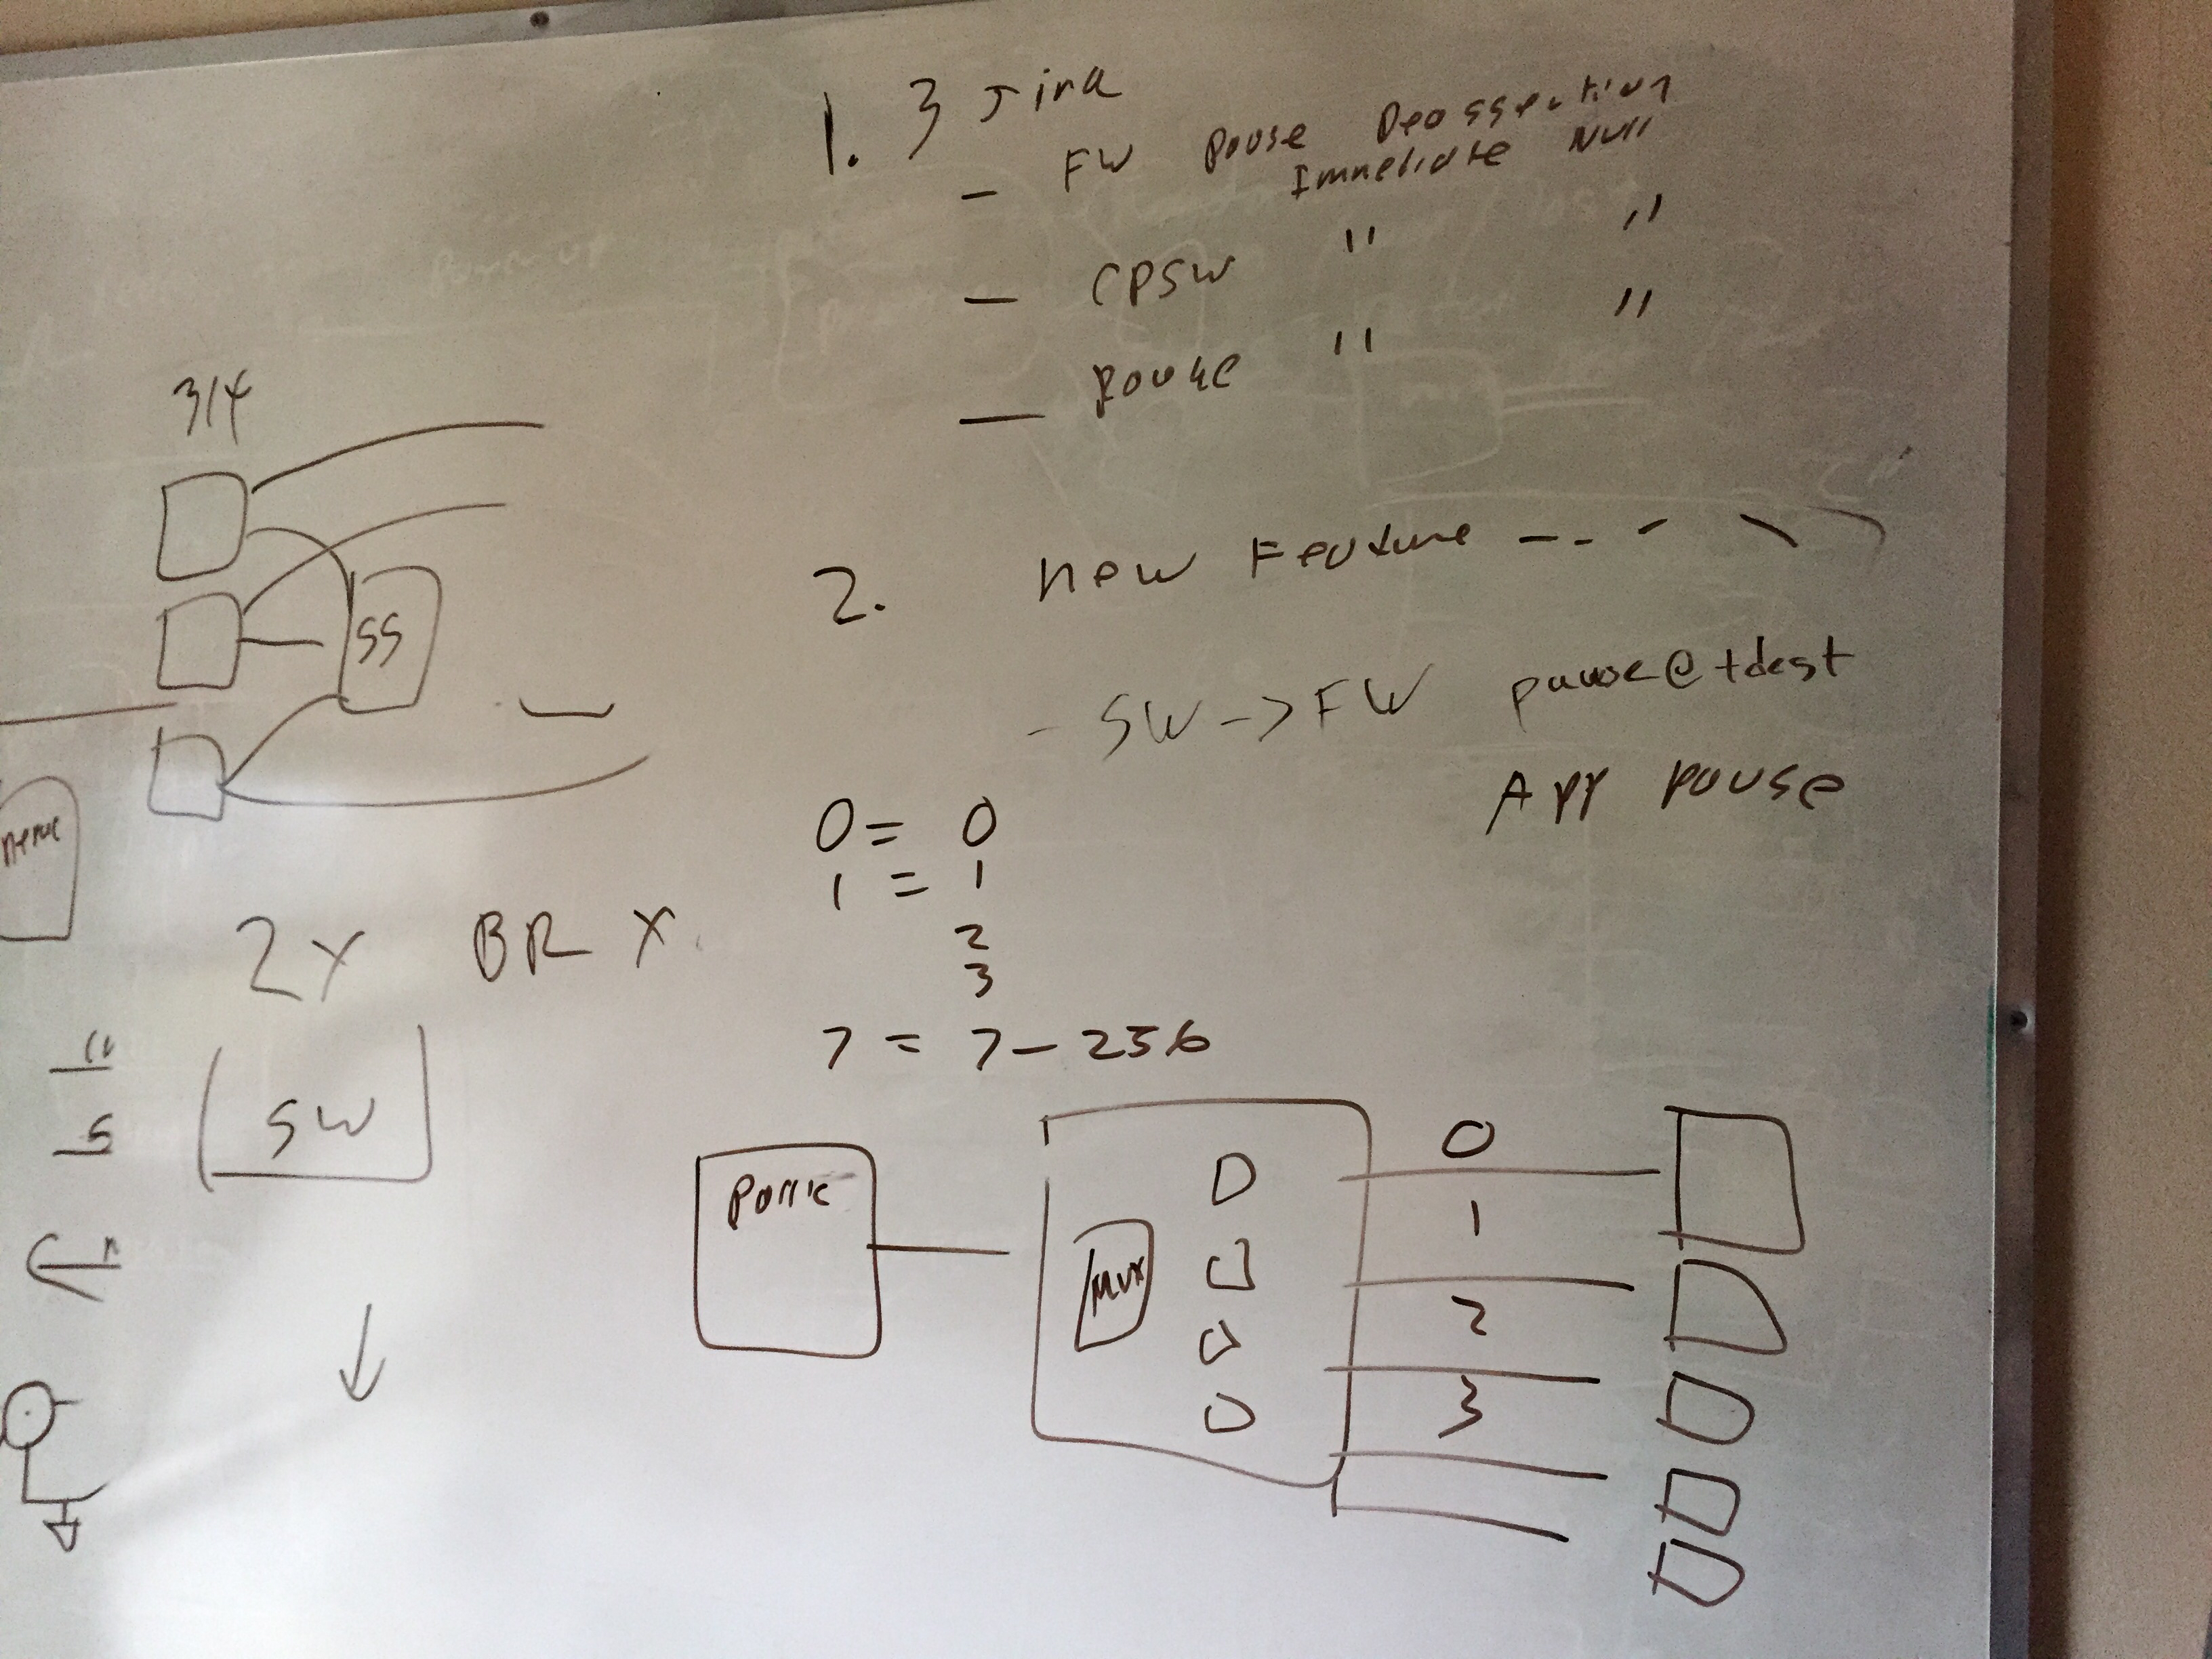 1. 3 Jira
- FW Pause Deassertion
Immediate Null
- CPSW " "
- Rouge " "
2. New Feature -- -
- SW -> FW pause@tdest
App pause
0 = 0
1 = 1
2
3
7 = 7-256
314
SS
2x BR x
SW
MUX
0
1
2
3